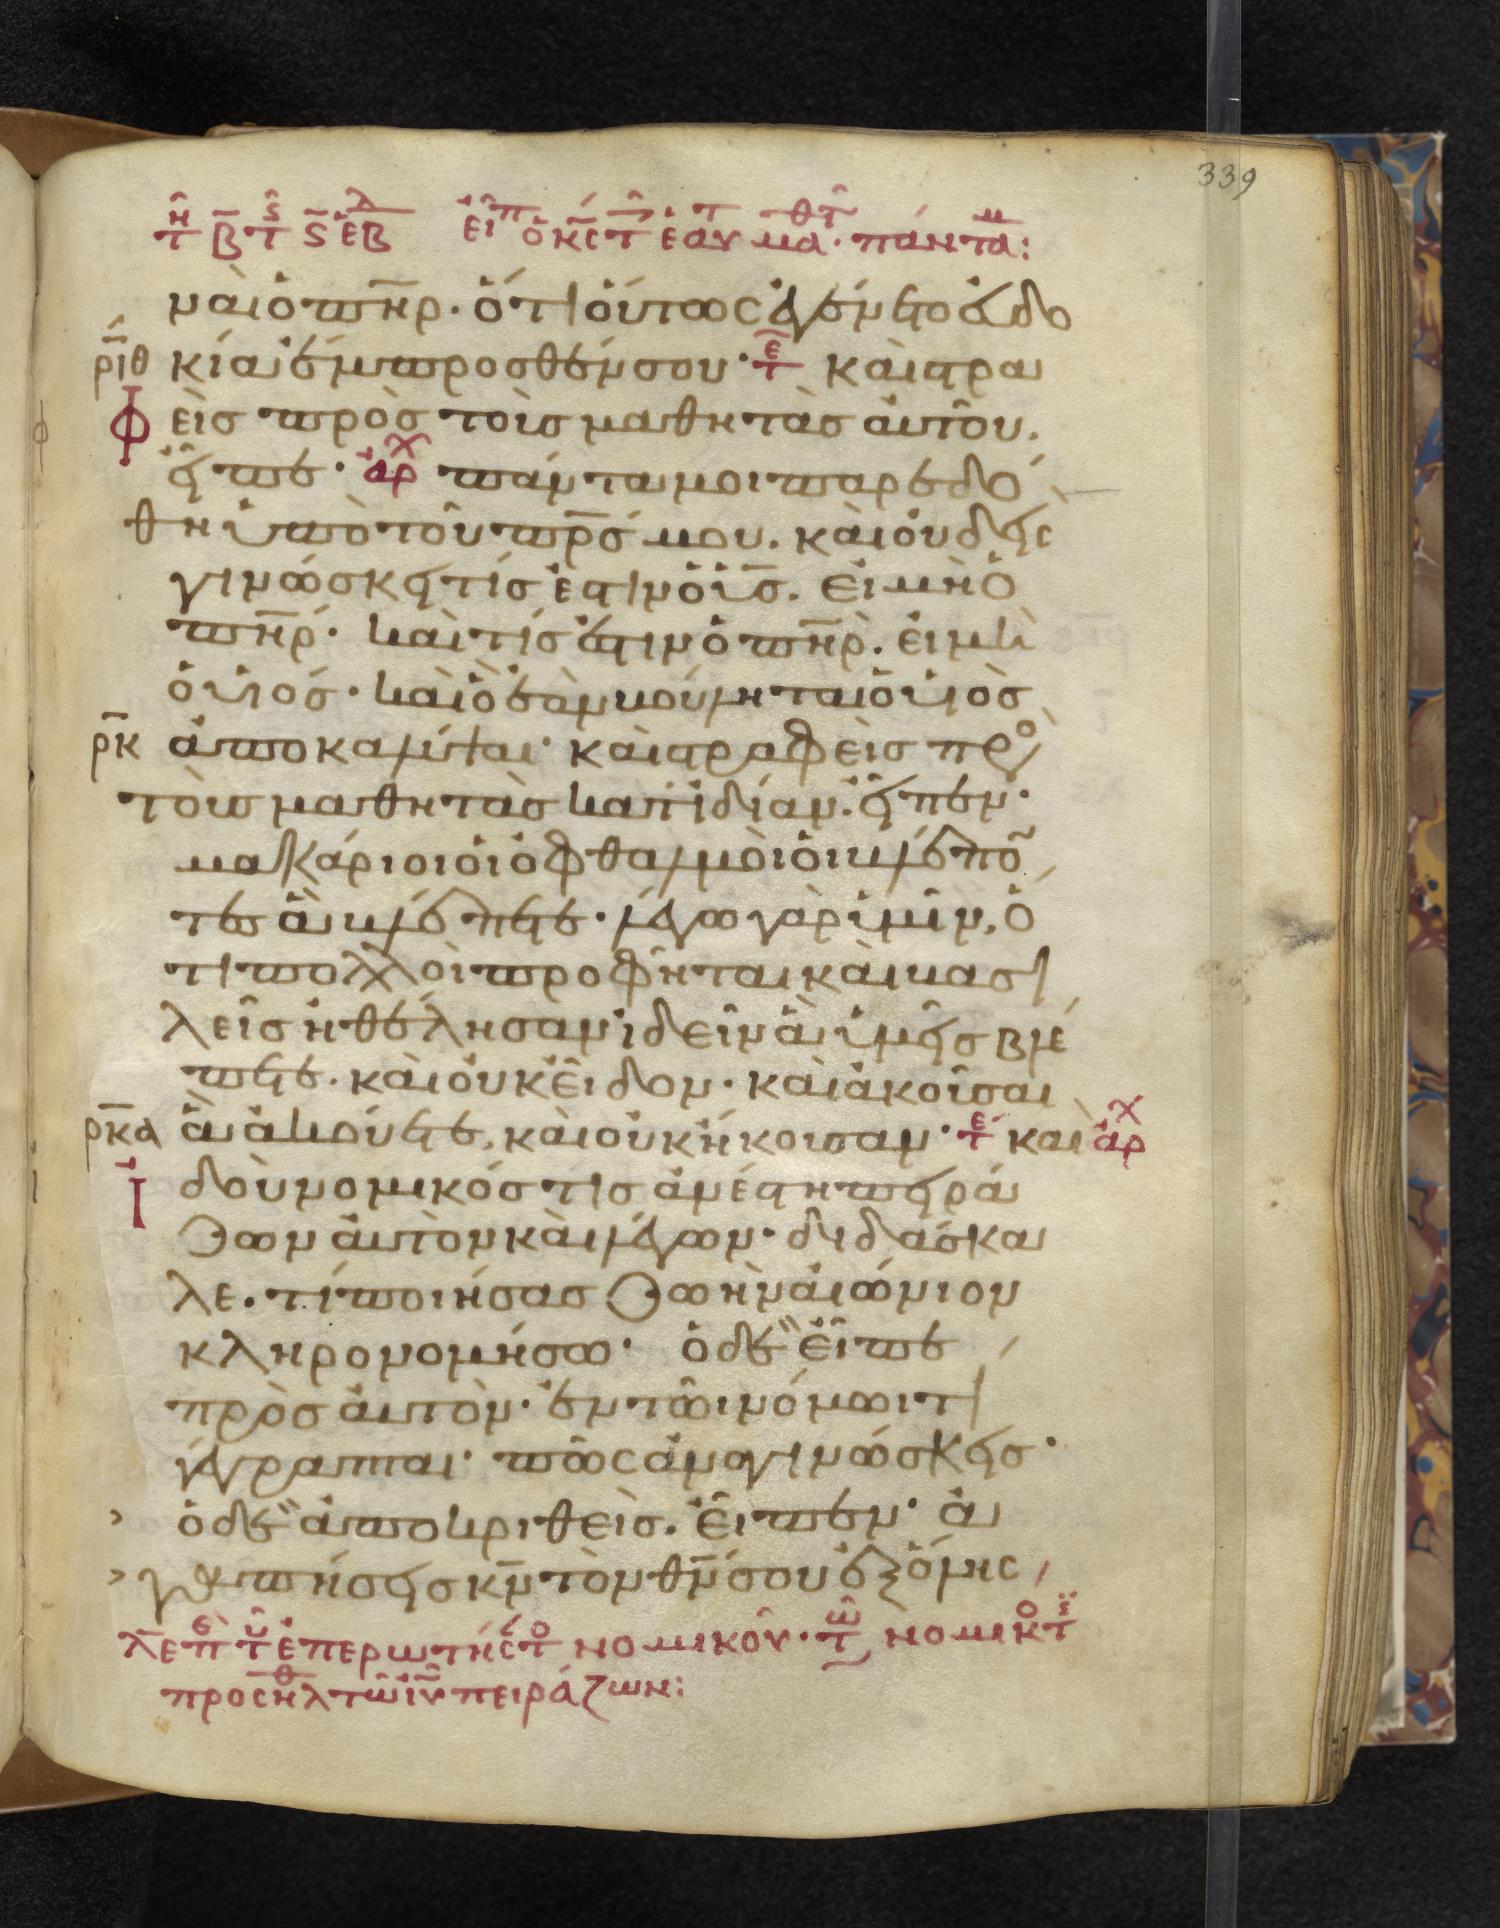 339
τῇ β τ ϛ ἑβ εἶπ ὁ κς τ ἑαυ μαθτ· πάντα μ:
ναὶ ὁ πηρ. ὅτι οὕτως ἐγένετο εὐδο
ριθ κία ἔμπροσθέν σου· τε καὶ στρα
φεὶς πρὸς τοὺς μαθητὰς αὐτοῦ.
εἶπε· ἀρχ πάντα μοι παρεδό
θη ὑπὸ τοῦ πρς μου. καὶ οὐδεὶς
γινώσκει τίς ἐστιν ὁ υἱς. εἰ μὴ ὁ
πηρ. καὶ τίς ἐστιν ὁ πηρ. εἰ μὴ
ὁ υἱός. καὶ ὃ ἐὰν βούληται ὁ υἱὸς
ρκ ἀποκαλύψαι· καὶ στραφεὶς πρὸ
τοὺς μαθητὰς κατ ἰδίαν. εἶπεν·
μακάριοι οἱ ὀφθαλμοὶ οἱ βλέποῦ
τες ἃ βλέπετε· λέγω γὰρ ὑμῖν, ὅ
τι πολλοὶ προφῆται καὶ βασι
λεῖς ἠθέλησαν ἰδεῖν ἃ ὑμεῖς βλέ
πετε. καὶ οὐκ εἶδον. καὶ ἀκοῦσαι
ρκα ἃ ἀκούετε, καὶ οὐκ ἤκουσαν· τε και ἀρχ
Ἰ δοὺ νομικός τις ἀνέστη πειρά
ζων αὐτὸν καὶ λέγων· διδάσκα
λε. τί ποιήσας ζωὴν αἰώνιον
κληρονομήσω· ὁ δὲ εἶπε
πρὸς αὐτὸν· ἐν τῶι νόμωι τι
γέγραπται· πῶς ἀναγινώσκεις·
ὁ δὲ ἀποκριθεὶς. εἶπεν· ἀ
γαπήσεις κν τὸν θν σου ἐξ ὅλης
ἐπερωτής νομικοῦ· νομικ
προσῆλθ τῶ ιυ πειράζων: